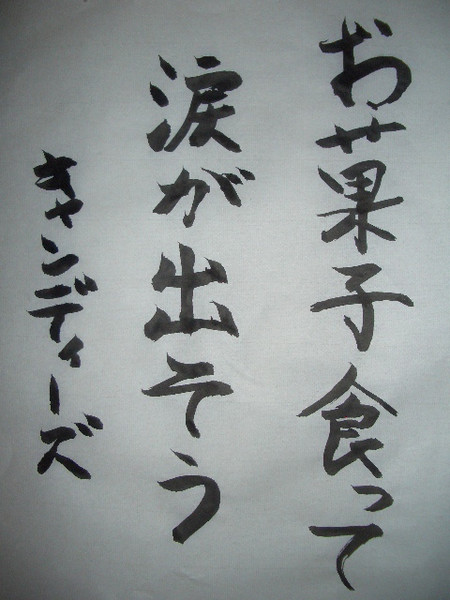 お菓子食って
涙が出そう
キャンディーズ